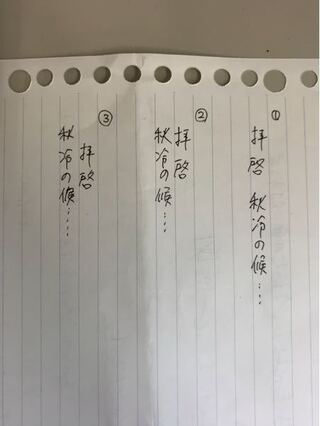 ①
拝啓 秋冷の候……
②
拝啓
秋冷の候……
③
拝啓
秋冷の候……